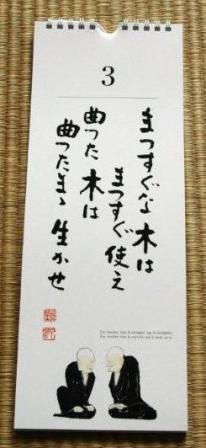 3
まつすぐな木は
まつすぐ使え
曲つた木は
曲つたまゝ生かせ